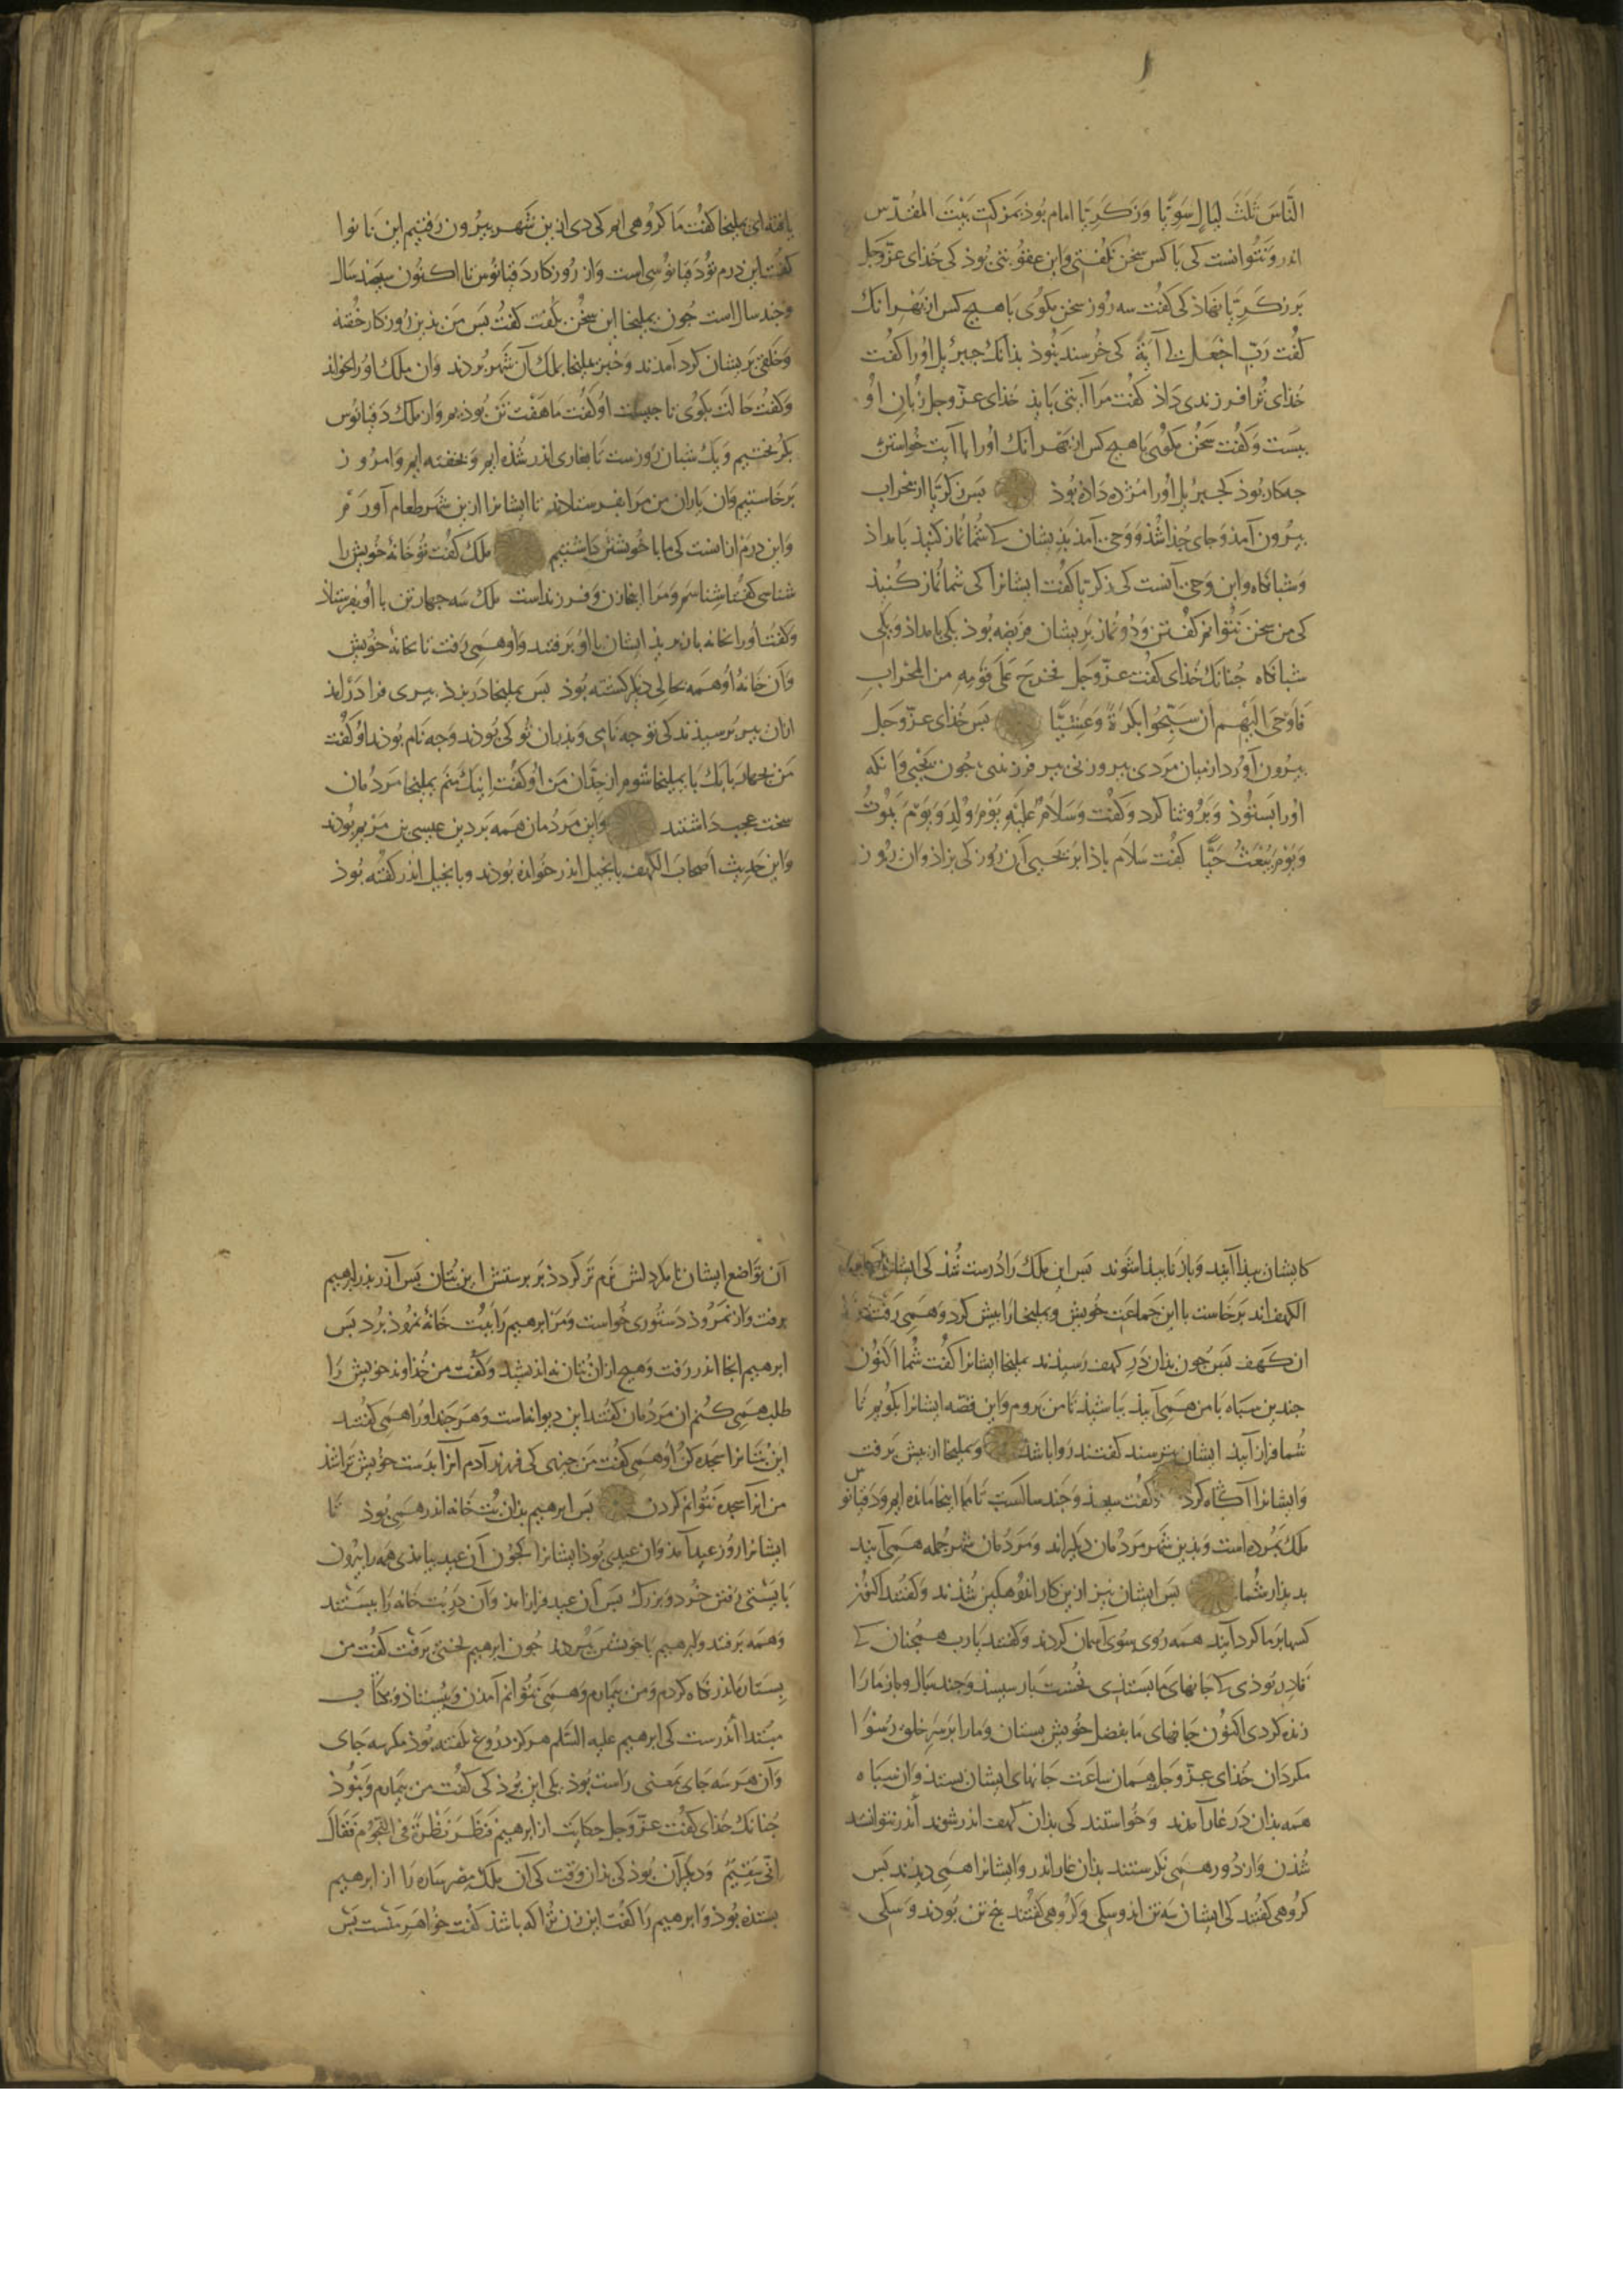 النَّاسَ ثَلثَ لَيَالٍ سَوِيًّا وَزَكَرِيّا امام بُوذ بمزكت بَيْتَ المقدّس
اندر وَنَتُوانست كى با كس سخن كفتى وَاين عقوبتى بُوذ كى خذاى عزّوجل
بر زكريّا نهاذ كى كفت سه روز سخن مكوى با هيج كس از بهر انك
كفت ربّ اجْعَل لى آيَةً كى خرسند نبُوذ بذانك جبرئيل اورا كفت
خذاى ترا فرزندى داذ كفت مرا آيتى بايذ خذاى عزّوجل زبان او
ببست وَكفت سخن مكوى با هيج كس از بهر انك اورا با آيت خواستن
جه كار بوذ كجبرئيل اورا مژده داذه بوذ پس زكريّا از محراب
بيرون آمذ وجاى جذا شذ وَوحى آمذ بذيشان كى شما نماز كنيذ بامداذ
وَشبانكاه واين وَحى آنست كى زكريّا كفت ايشانرا كى شما نماز كنيذ
كى من سخن نتوانم كفتن وَدو نماز بريشان فريضه بوذ يكى بامداذ ويكى
شبانكاه جنانك خذاى كفت عزّوجل فخرجَ عَلى قَومِهِ من المحْرابِ
فَاَوْحَى اليْهِم اَن سَبِّحُوا بكرَةً وَعَشِيًّا پس خذاى عزّوجل
بيرون آورد از ميان مردى پير وزنى پير فرزندى جون يَحْيى وَانكه
اورا بستوذ وَبَرو ثنا كرد وَكفت وَسَلامٌ علَيْهِ يَوْمَ وُلِدَ وَيَومَ يَمُوتُ
وَيَوْمَ يُبْعَثُ حَيًّا كفت سَلام باذا بر يحيى آن روز كى بزاذ وان روز
يافته اى يمليخا كفت ما كروهى ايم كى دى ازين شهر بيرون رفتيم اين نانوا
كفت اين درم تو دقيانوسى است وَاز روزكار دقيانوس تا اكنون سيصذ سال
وجند سال است جون يمليخا اين سخن بكفت كفت پس من بذين روزكار خفته
وَخلقى بريشان كرد آمدند وَخبر يمليخا بملك آن شهر بردند وان ملك اورا بخواند
وَكفت حالت بكوى تا جيست او كفت ما هفت تن بوذيم وَاز ملك دقيانوس
بكريختيم وَيك شبان روزست تا بغارى اندر شذه ايم وَبخفته ايم وَامروز
برخاستيم وَان ياران من مرا بفرستاذند تا ايشانرا ازين شهر طعام آورم
وَاين درم ازانست كى ما با خويشتن داشتيم ملك كفت تو خانهٔ خويش را
شناسى كفتا شناسم وَمرا اينجا زن وَفرزنداست ملك سه جهار تن با او بفرستاذ
وَكفت اورا بخانه باز بريذ ايشان با او برفتند وَاو همى رفت تا بخانهٔ خويش
وَان خانهٔ او همه بحالى ديكر كشته بوذ پس يمليخا در بزد پيرى فرا در آمذ
ازان پير پرسيذند كى تو جه نامى وَپذران تو كى بوذند وَجه نام بوذند او كفت
من بجهارم بابك با يمليخا شوم از جدّان من او كفت اينك منم يمليخا مردمان
سخت عجب داشتند واين مردمان همه بر دين عيسى بن مريم بوذند
وَاين حديث اصحاب الكهف بانجيل اندر خوانده بوذند وبانجيل اندر كفته بوذ
كايشان پيذا آيند وَباز ناپيذا شوند پس اين ملك را درست شذ كى ايشان
الكهف اند برخاست با اين جماعت خويش ويمليخا را پيش كرد وهمى رفت
ان كهف پس جون بذان در كهف رسيذند يمليخا ايشانرا كفت شما اكنون
جندين سپاه با من همى آييذ بباشيذ تا من بروم وَاين قصّه ايشانرا بكويم تا
شما فراز آييذ ايشان بترسند كفتند روا باشد ويمليخا از پيش برفت
وَايشانرا آكاه كرد وكفت سيصذ وجند سالست تا ما اينجا مانده ايم وَدقيانوس
ملك بمرده است وَبذين شهر مردمان ديكراند وَمردمان شهر جمله همى آيند
بديذار شما پس ايشان نيز ازين كار اندوهكين شذند وَكفتند اكنون
كسها بر ما كرد آيند همه روى سوى آسمان كردند وَكفتند يارب همجنان كى
قادر بوذى كى جانهاى ما بستذى نخست بار سيصذ وَجند سال وباز ما را
زنده كردى اكنون جانهاى ما بفضل خويش بستان وَمارا بر سر خلق رسوا
مكردان خذاى عزّوجل همان ساعت جانهاى ايشان بستذ وان سپاه
همه بذان در غار آمدند وَخواستند كى بذان كهف اندر شوند اندر نتوانستند
شذن وَاز دور همى نكرستند بذان غار اندر وَايشانرا همى ديذند پس
كروهى كفتند كى ايشان سه تن اند وسكى وَكروهى كفتند پنج تن بوذند وَسكى
آن تواضع ايشان تا مكر دلش نرم تر كردد بر پرستش اين بتان پس آزر پذر ابرهيم
برفت وَاز نمروذ دستورى خواست وَمر ابرهيم را ببت خانهٔ نمروذ برد پس
ابرهيم انجا اندر رفت وَهيج ازان بتان نه انديشيد وَكفت من خذاوند خويش را
طلب همى كنم ان مردمان كفتند اين ديوانه است وَهر جند اورا همى كفتند
اين بتانرا سجده كن او همى كفت من جيزى كى فرزند آدم انرا بدست خويش تراشذ
من انرا سجده نتوانم كردن پس ابرهيم بذان بت خانه اندر همى بوذ تا
ايشانرا روز عيد آمذ وَان عيدى بوذ ايشانرا كجون آن عيد بيامذى همه را بيرون
بايستى رفتن خرد وبزرك پس آن عيد فراز آمذ وَآن در بت خانه را ببستند
وَهمه برفتند وابرهيم با خويشتن ببردند جون ابرهيم لختى برفت كفت من
بستاره اندر نكاه كردم وَمن بيمارم وَهمى نتوانم آمدن وَبيستاذ وبكتاب
مبتدا اندرست كى ابرهيم عليه السّلم هركز دروغ نكفته بوذ مكر سه جاى
وَآن هر سه جاى بمعنى راست بوذ يكى اين بوذ كى كفت من بيمارم وَنبوذ
جنانك خذاى كفت عزّوجل حكايت از ابرهيم فَنَظَرَ نَظْرَةً فى النّجُوم فَقَالَ
انّى سَقِيمٌ وَديكر آن بوذ كى بذان وقت كى آن ملك مصر ساره را از ابرهيم
بستذه بوذ وَابرهيم را كفت اين زن ترا كه باشذ كفت خواهر منست پس